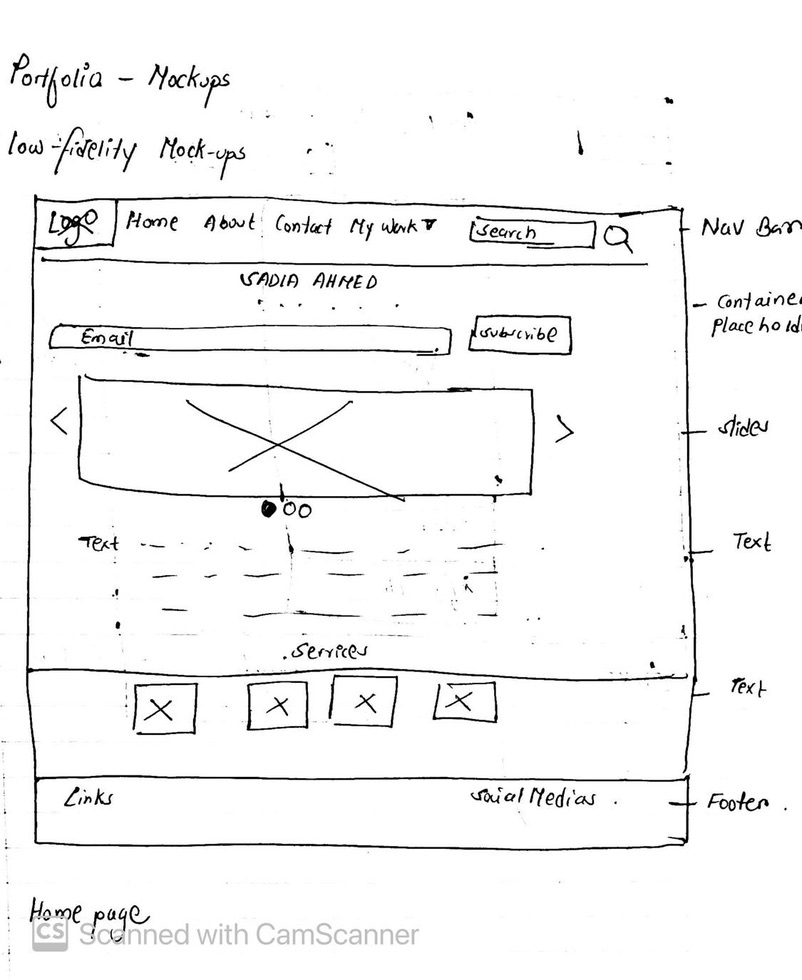 Portfolia - Mockups
low-fidelity Mock-ups
Logo Home About Contact My Work ▼ search Nav Bar
SADIA AHMED
Container
Placehold
Email subscribe
< > slider
Text Text
Services
Text
Links Social Medias . Footer .
Home page
CS Scanned with CamScanner